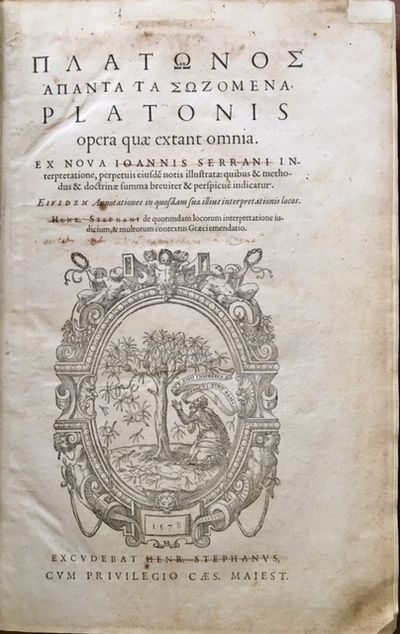 ΠΛΑΤΩΝΟΣ
ΑΠΑΝΤΑ ΤΑ ΣΩΖΟΜΕΝΑ.
PLATONIS
opera quæ extant omnia.
EX NOVA IOANNIS SERRANI IN-
terpretatione, perpetuis eiusdē notis illustrata: quibus & metho-
dus & doctrinæ summa breuiter & perspicuè indicatur.
EIVSDEM Annotationes in quosdam suæ illius interpretationis locos.
HENR. STEPHANI de quorundam locorum interpretatione iu-
dicium, & multorum contextus Græci emendatio.
1578
EXCVDEBAT HENR. STEPHANVS,
CVM PRIVILEGIO CÆS. MAIEST.